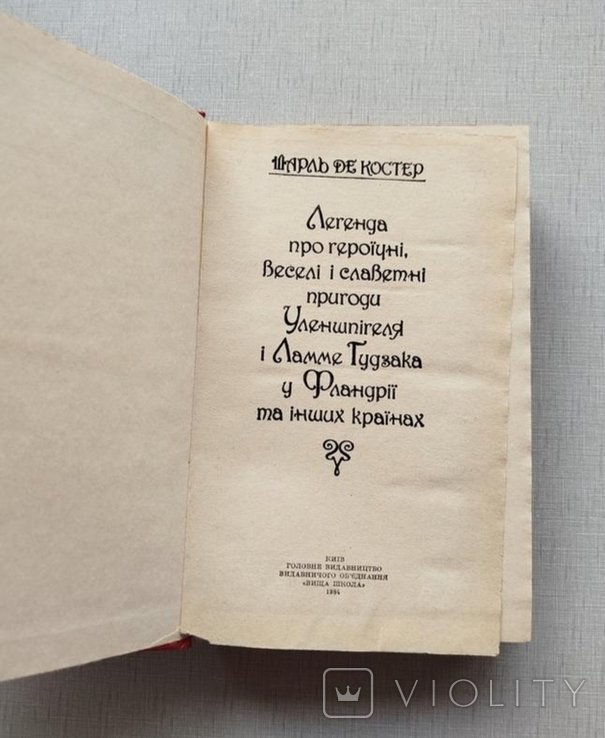 ШАРЛЬ ДЕ КОСТЕР
Легенда
про героїчні,
веселі і славетні
пригоди
Уленшпігеля
і Ламме Гудзака
у Фландрії
та інших країнах
КИЇВ
ГОЛОВНЕ ВИДАВНИЦТВО
ВИДАВНИЧОГО ОБ'ЄДНАННЯ
«ВИЩА ШКОЛА»
1984
VIOLITY